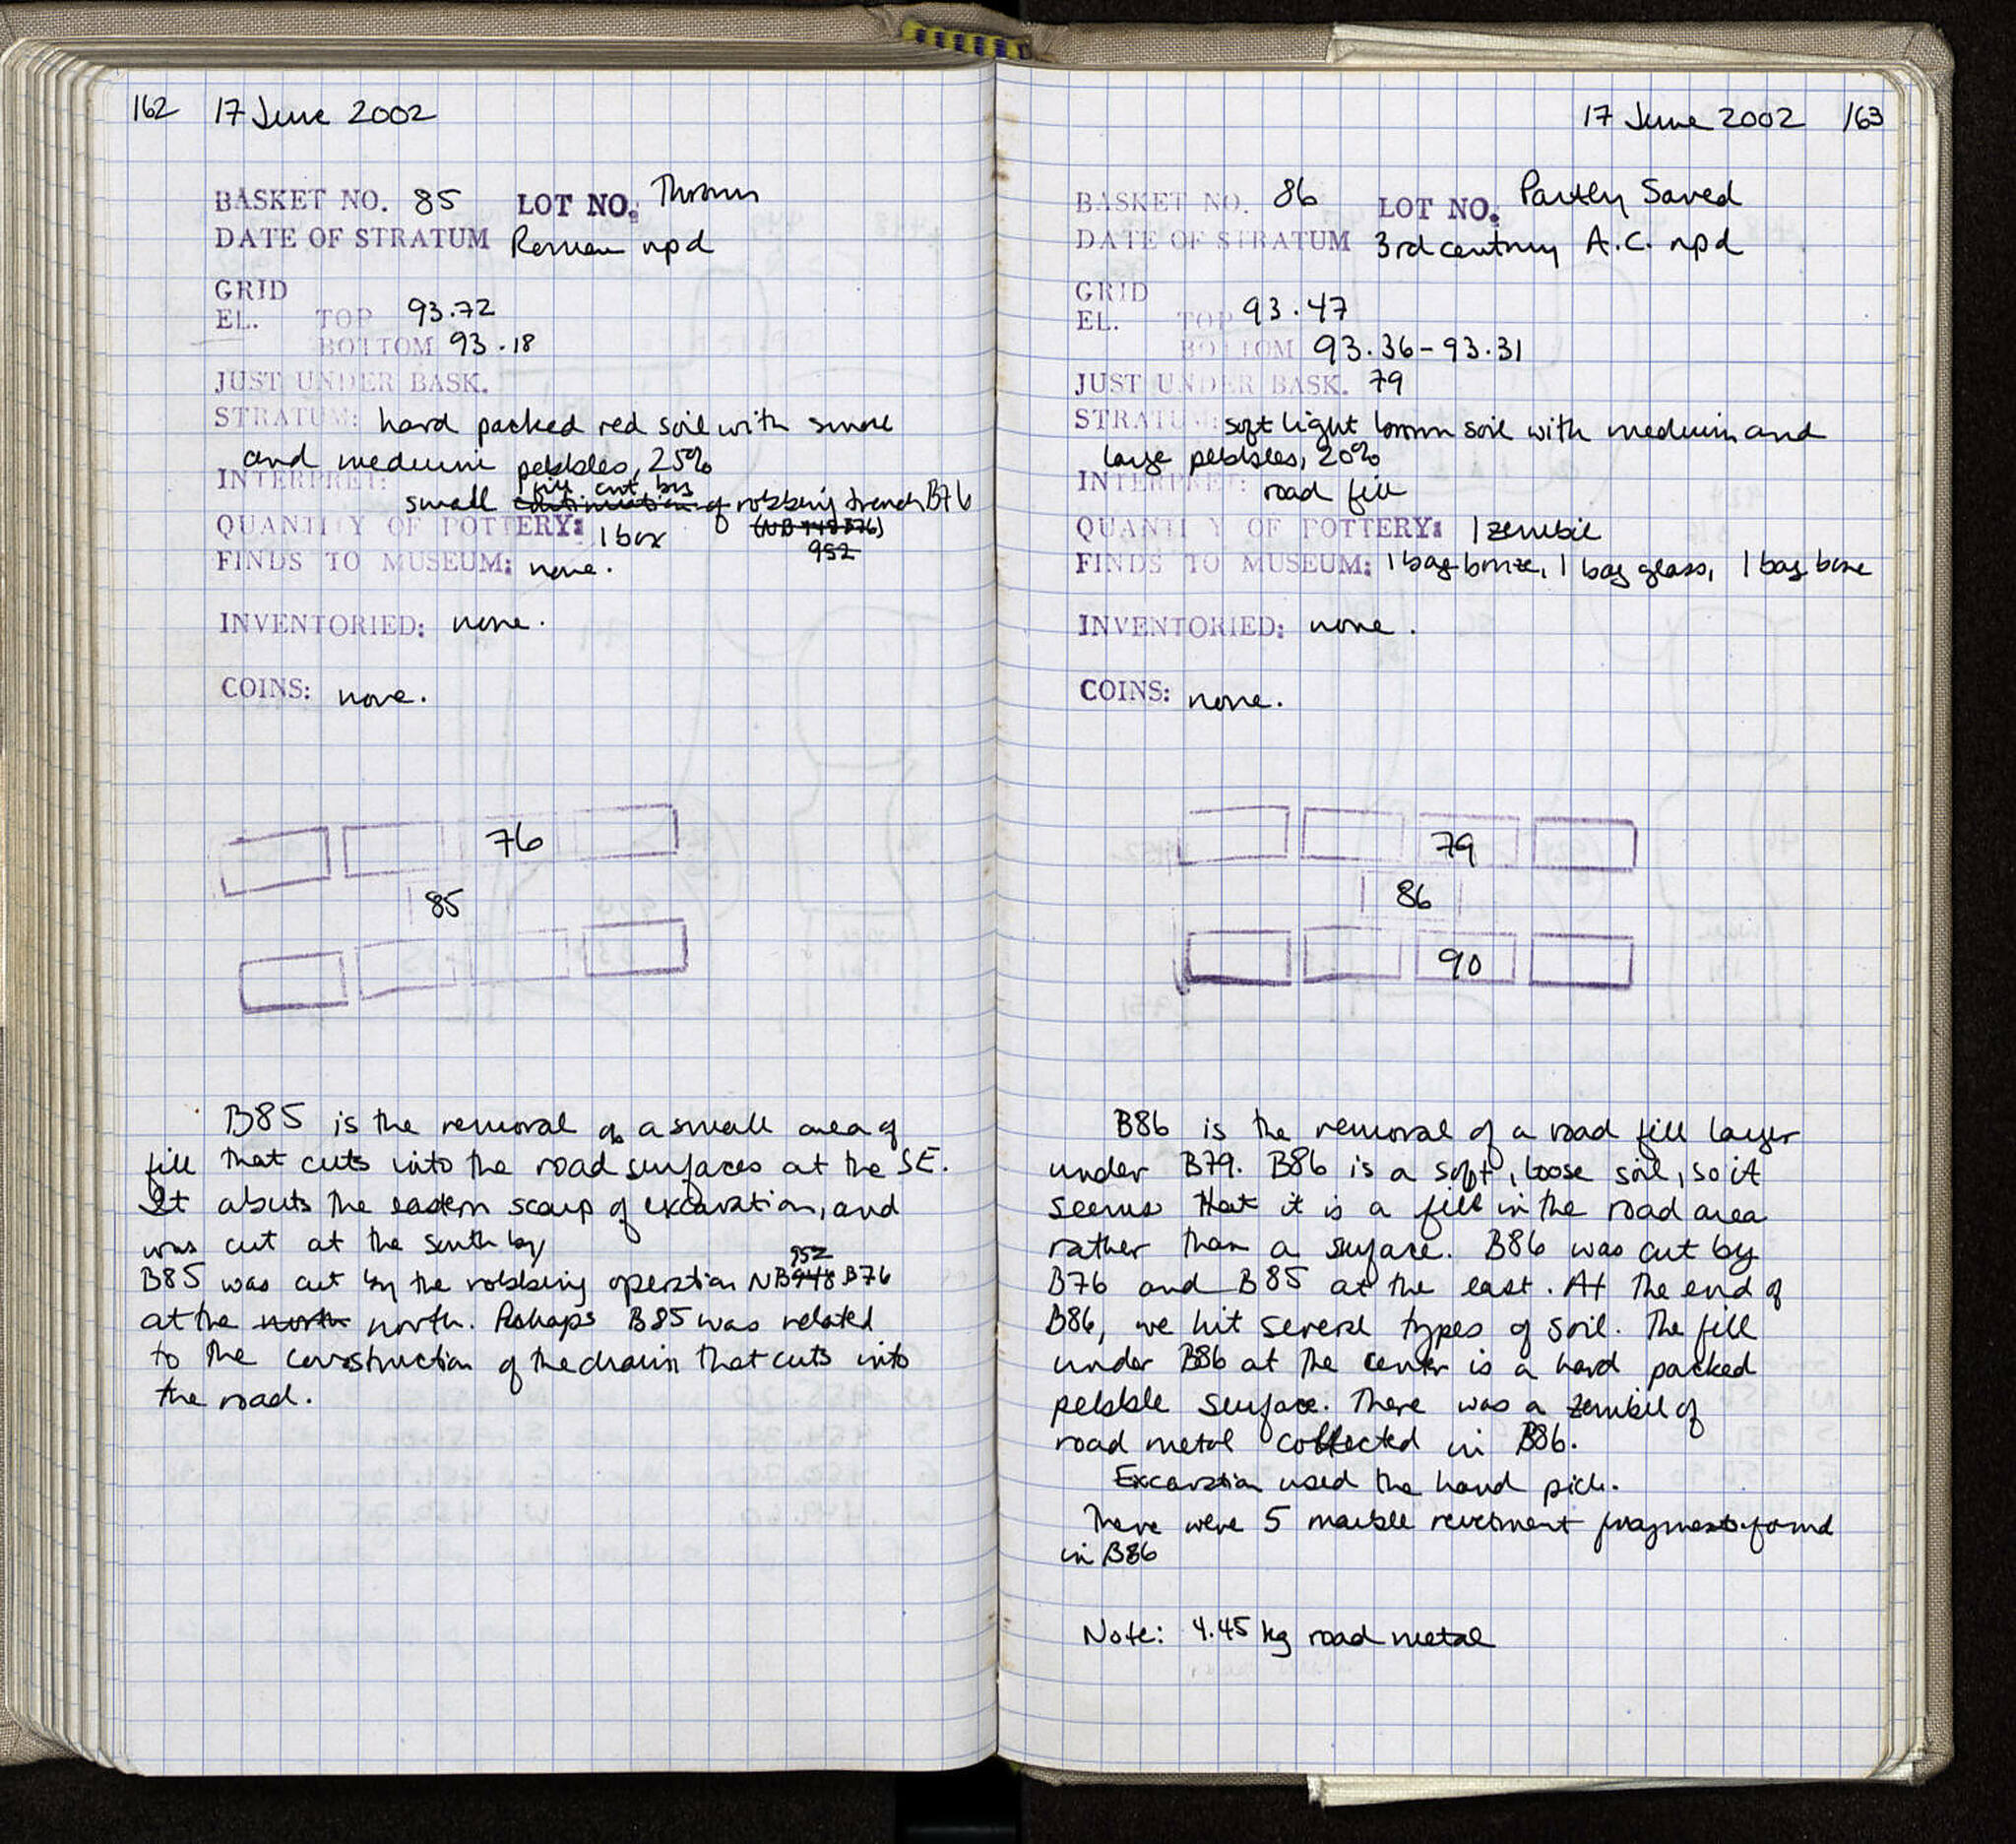 162 17 June 2002
BASKET NO. 85 LOT NO. Thrown
DATE OF STRATUM Roman npd
GRID
EL. TOP 93.72
BOTTOM 93.18
JUST UNDER BASK.
STRATUM: hard packed red soil with small
and medium pebbles, 25%
INTERPRET: fill cut by
small continuation of robbing trench B76
QUANTITY OF POTTERY: 1 box (NB 948 B76)
952
FINDS TO MUSEUM: none.
INVENTORIED: none.
COINS: none.
76
85
B85 is the removal of a small area of
fill that cuts into the road surfaces at the SE.
It abuts the eastern scarp of excavation, and
was cut at the south by
952
B85 was cut by the robbing operation NB948 B76
at the north north. Perhaps B85 was related
to the construction of the drain that cuts into
the road.
17 June 2002 163
BASKET NO. 86 LOT NO. Partly Saved
DATE OF STRATUM 3rd century A.C. npd
GRID
EL. TOP 93.47
BOTTOM 93.36-93.31
JUST UNDER BASK. 79
STRATUM: soft light brown soil with medium and
large pebbles, 20%
INTERPRET: road fill
QUANTITY OF POTTERY: 1 zembil
FINDS TO MUSEUM: 1 bag bronze, 1 bag glass, 1 bag bone
INVENTORIED: none.
COINS: none.
79
86
90
B86 is the removal of a road fill layer
under B79. B86 is a soft, loose soil, so it
seems that it is a fill in the road area
rather than a surface. B86 was cut by
B76 and B85 at the east. At the end of
B86, we hit several types of soil. The fill
under B86 at the center is a hard packed
pebble surface. There was a zembil of
road metal collected in B86.
Excavation used the hand pick.
There were 5 marble revetment fragments found
in B86
Note: 4.45 kg road metal